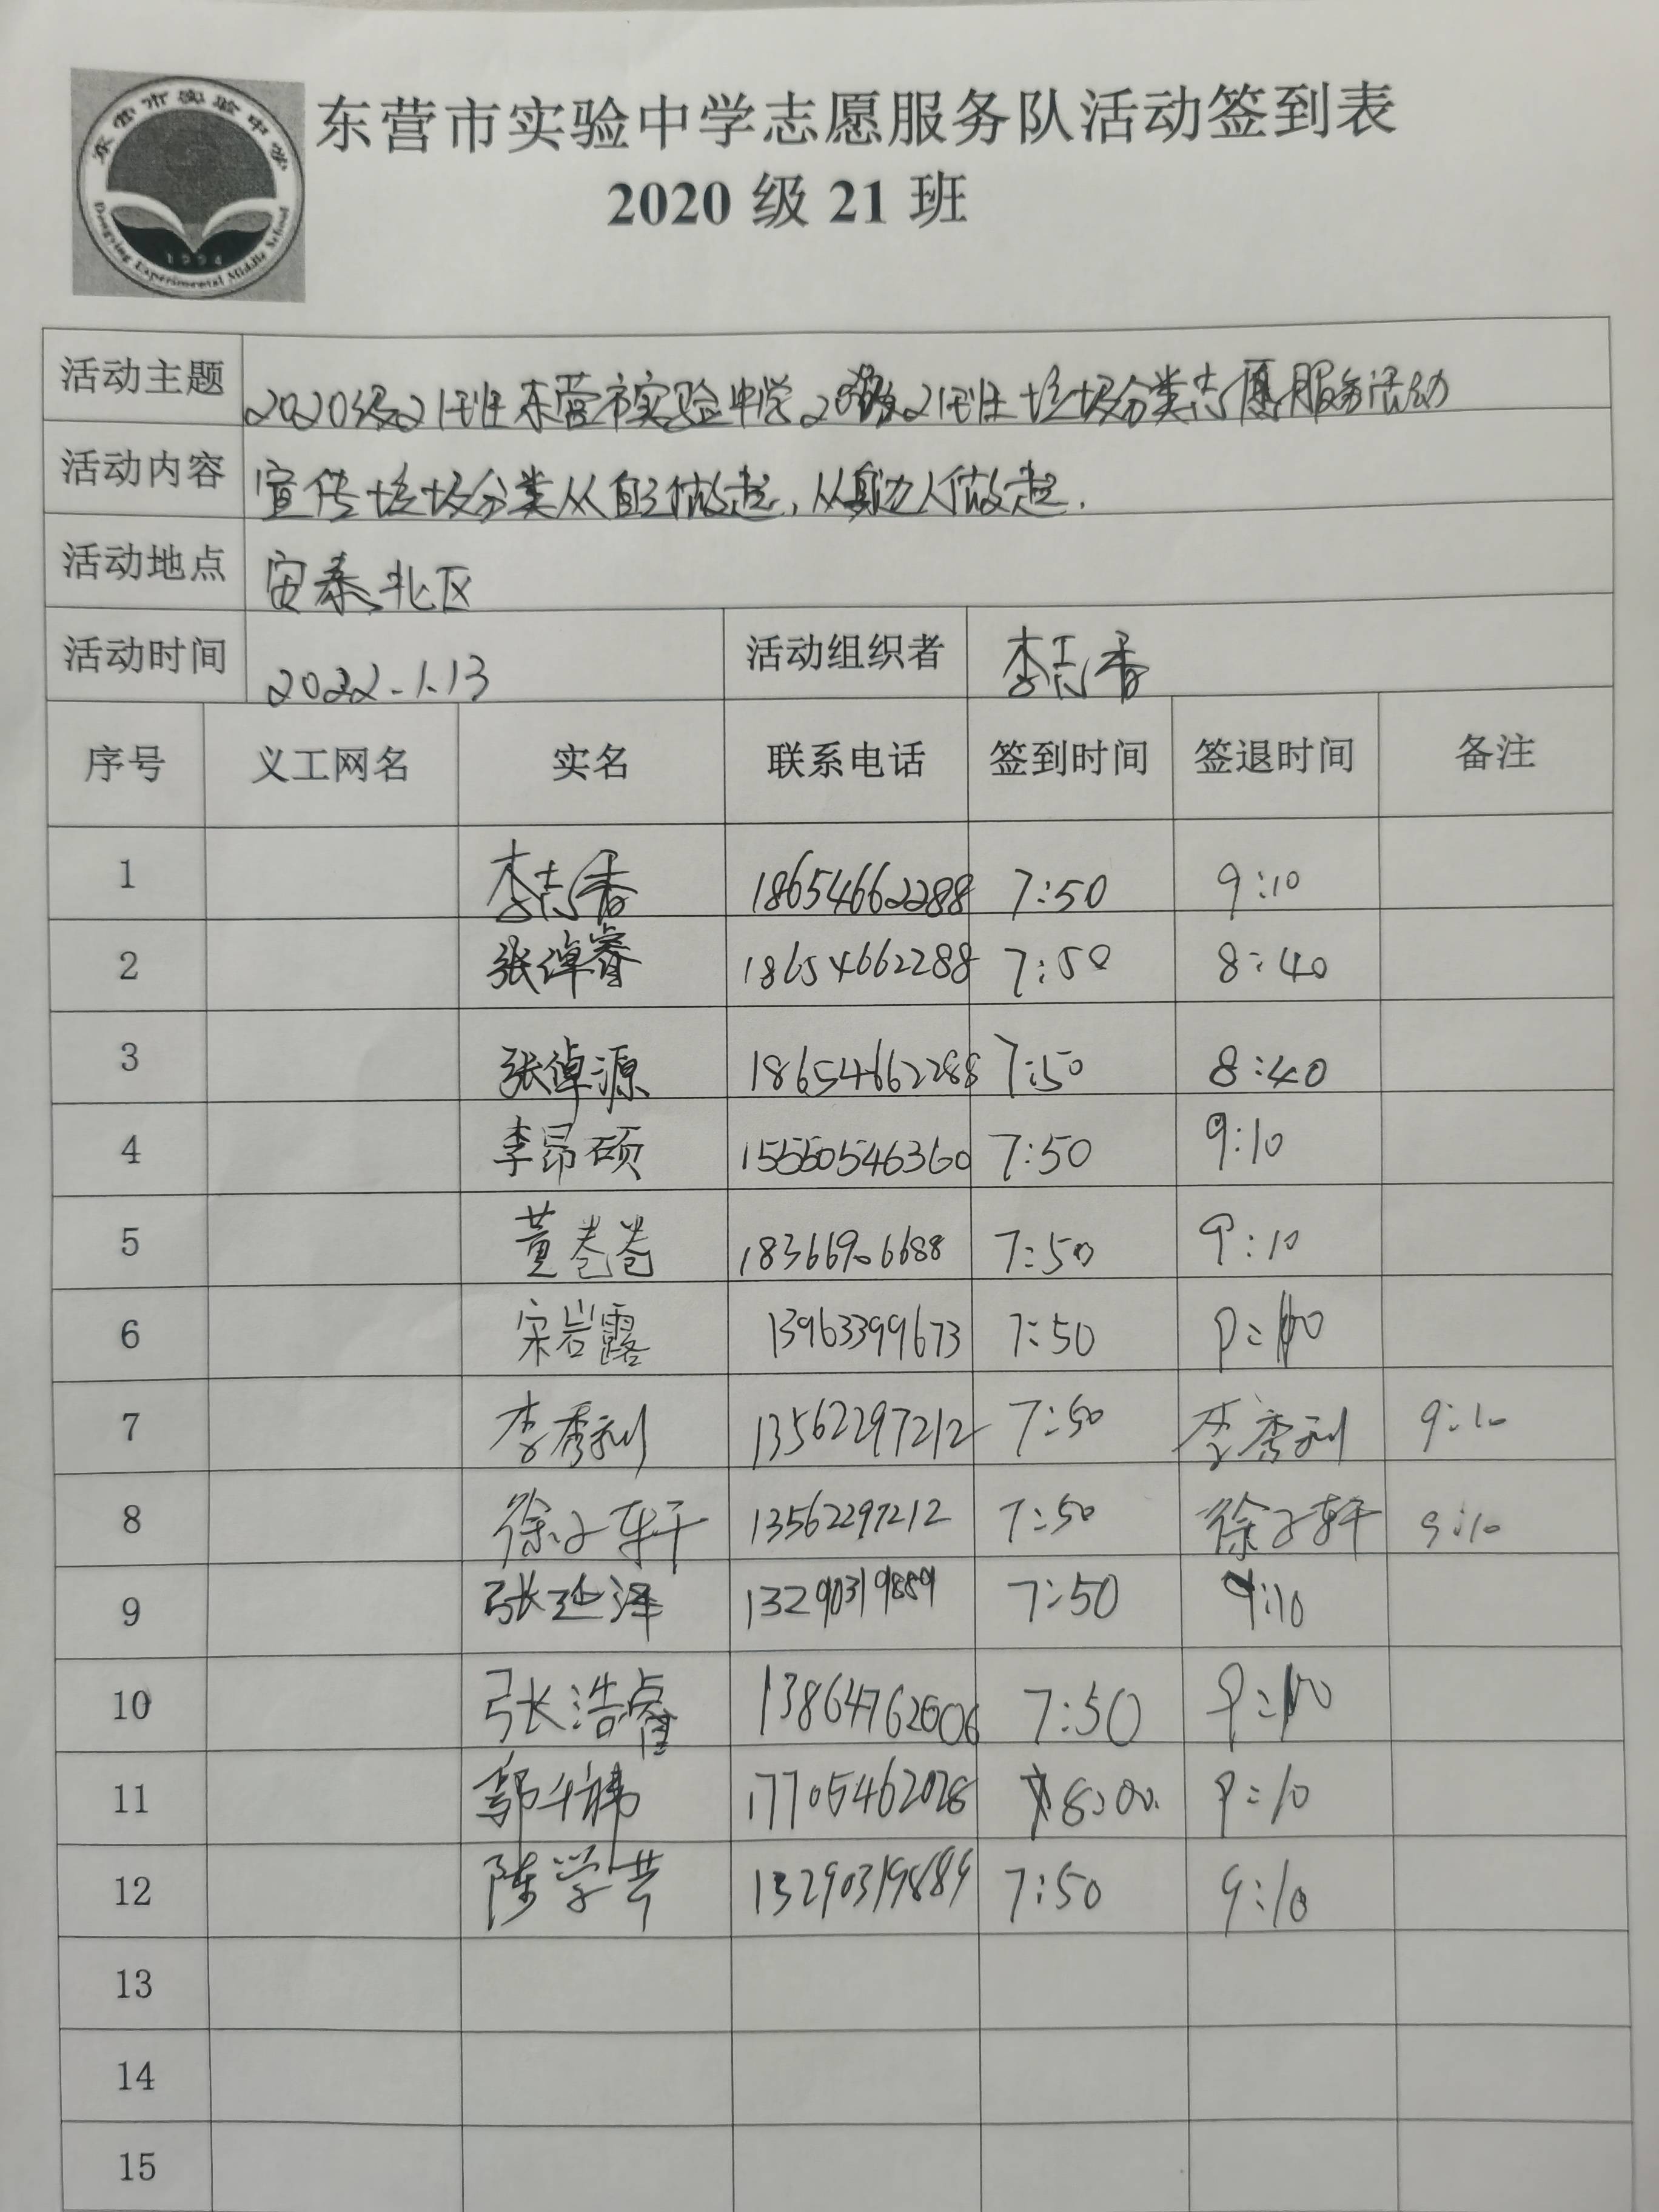 东营市实验中学
Dongying Experimental Middle School
1994
东营市实验中学志愿服务队活动签到表
2020 级 21 班
活动主题 2020级21班东营市实验中学 21班垃圾分类志愿服务活动
活动内容 宣传垃圾分类从自己做起,从身边人做起.
活动地点 安泰北区
活动时间 2022.1.13 活动组织者 李志香
序号 义工网名 实名 联系电话 签到时间 签退时间 备注
1 李志香 18654662288 7:50 9:10
2 张倬睿 18654662288 7:50 8:40
3 张倬源 18654662288 7:50 8:40
4 李昂硕 15550546360 7:50 9:10
5 黄 18366906688 7:50 9:10
6 宋岩露 13963399673 7:50 9:10
7 李秀利 13562297212 7:50 李秀利 9:10
8 徐子轩 13562297212 7:50 徐子轩 9:10
9 张延泽 13290319889 7:50 9:10
10 张浩睿 13864762606 7:50 9:10
11 郭千祎 17705462028 8:00 9:10
12 陈学芸 13290319889 7:50 9:10
13
14
15